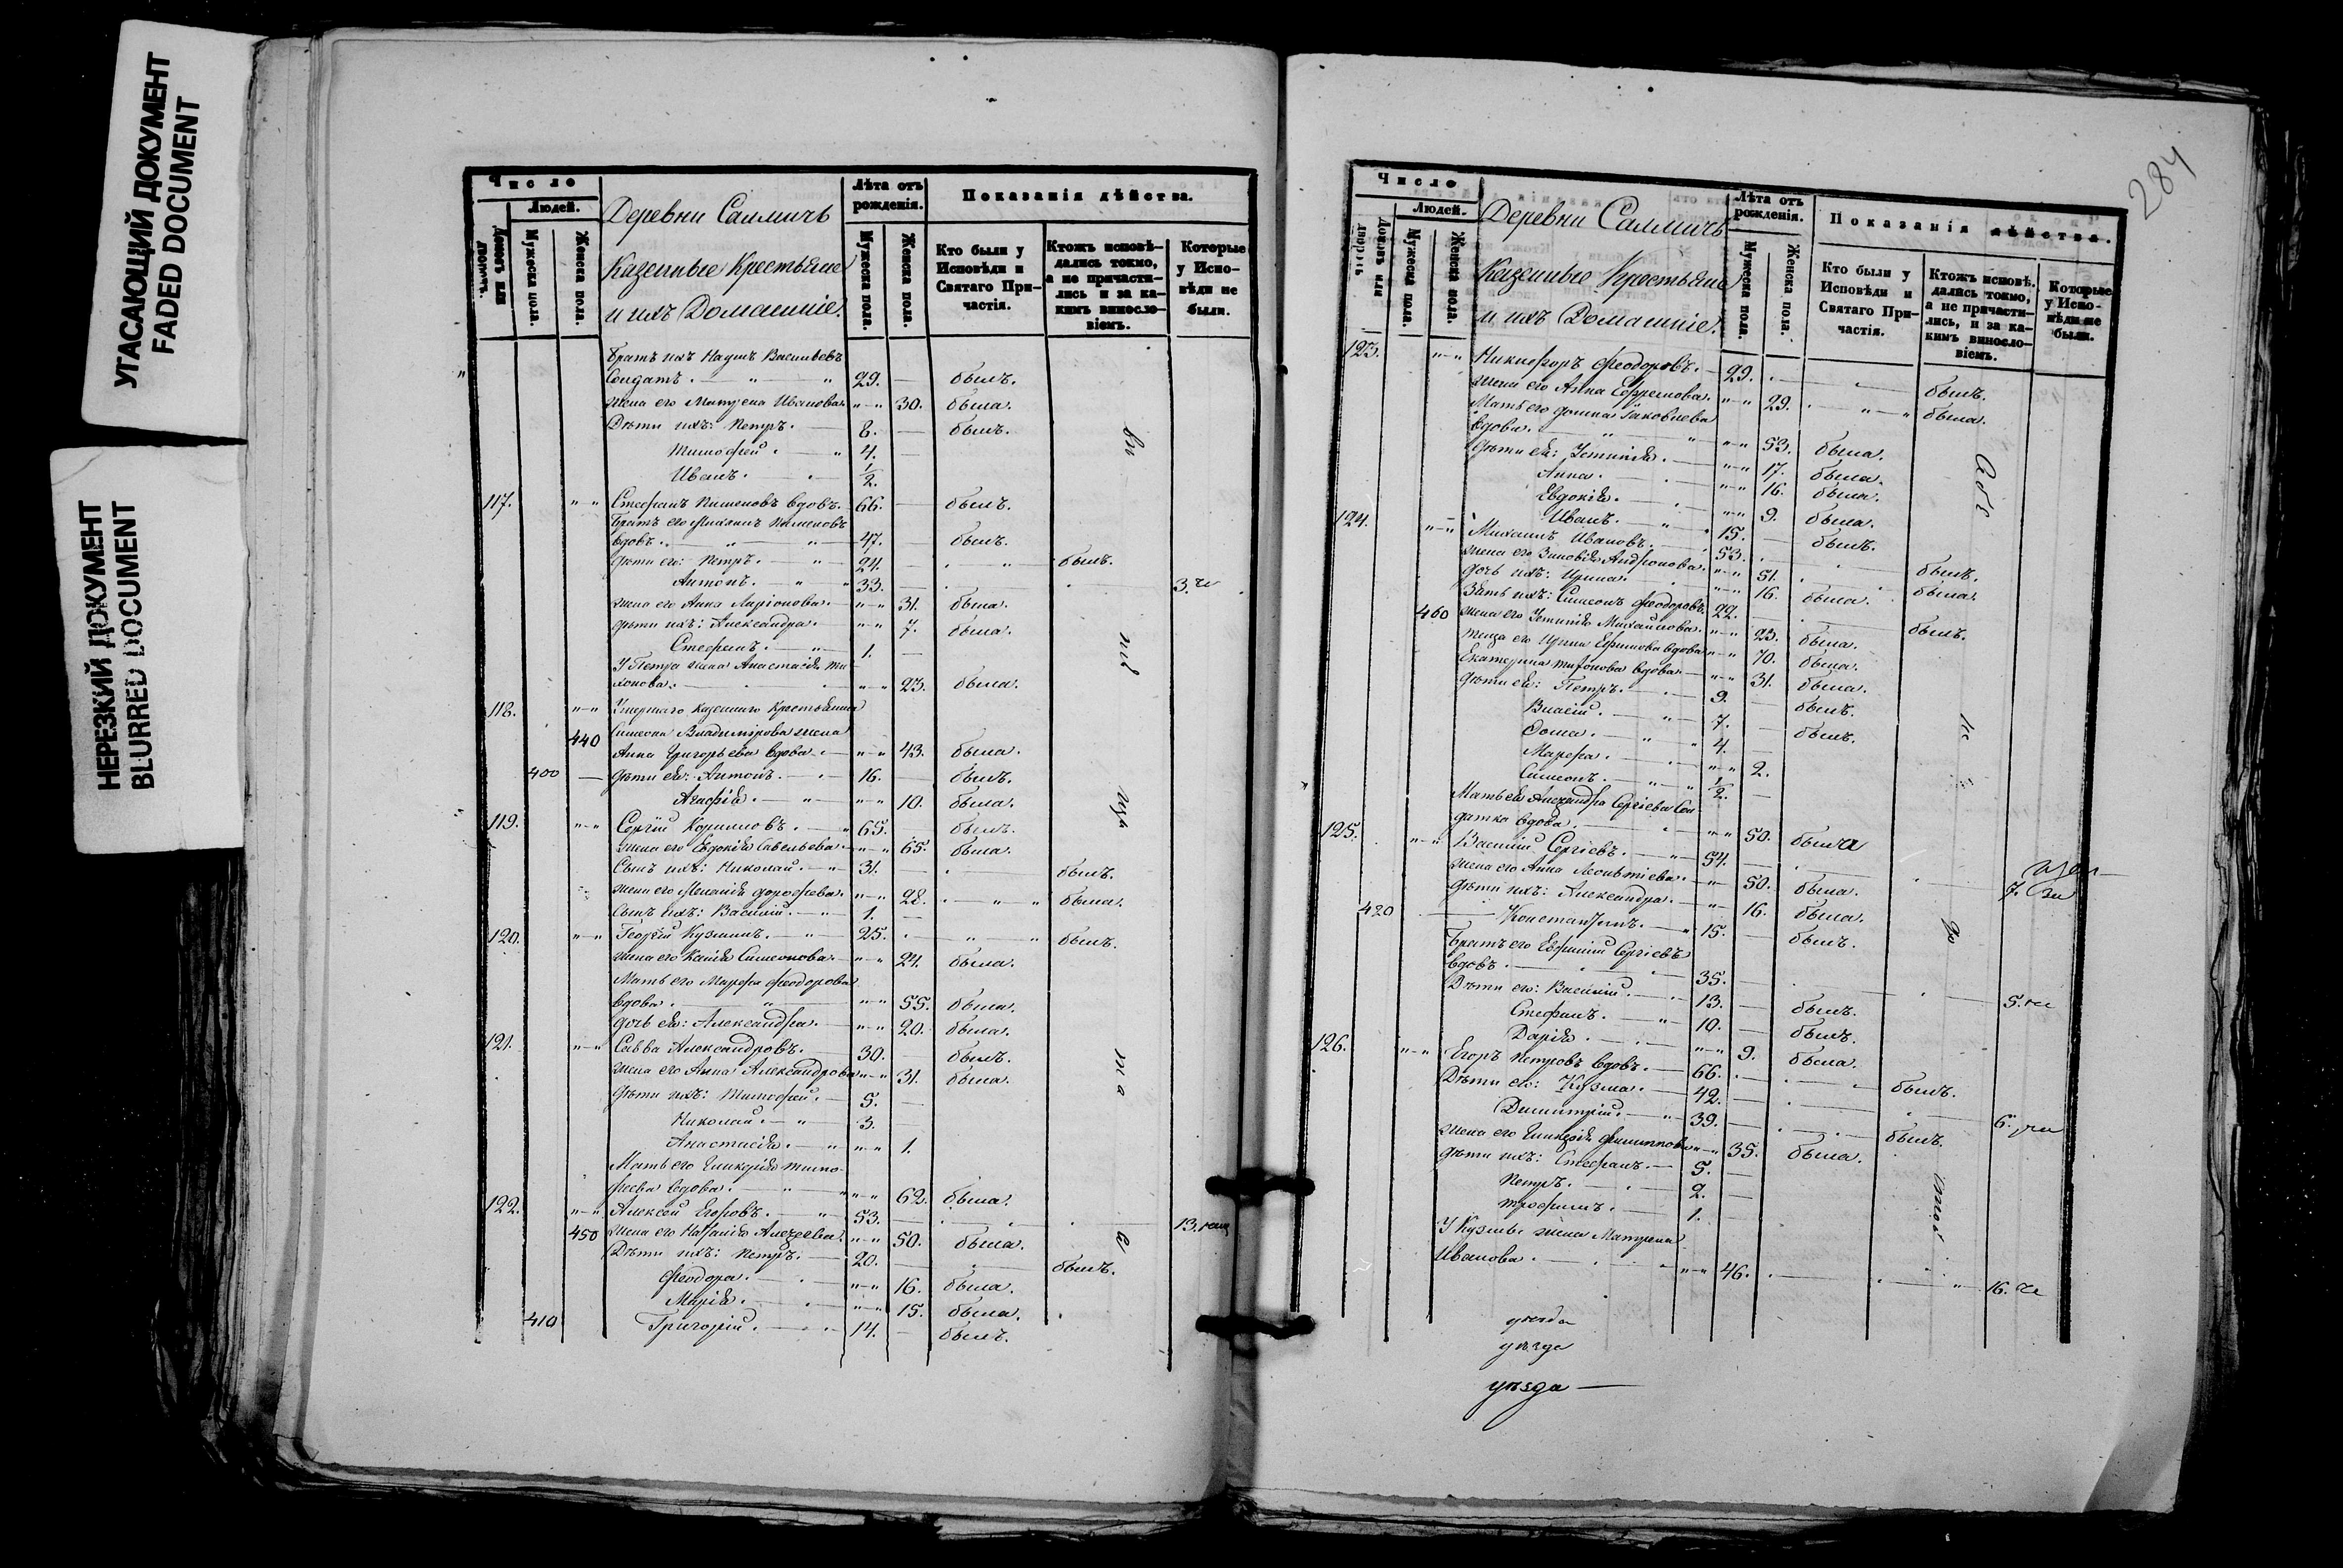 УГАСАЮЩИЙ ДОКУМЕНТ
FADED DOCUMENT
НЕРЕЗКИЙ ДОКУМЕНТ
BLURRED DOCUMENT
Число
Людей.
Домовъ или дворовъ.
Мужеска пола.
Женска пола.
Деревни
Казенные Крестьяне
и ихъ Домашніе.
Лѣта отъ рожденія.
Мужеска пола.
Женска пола.
Показанія дѣйства.
Кто были у Исповѣди и Святаго Причастія.
Ктожъ исповѣдались токмо, а не причастились и за какимъ винословіемъ.
Которые у Исповѣди не были.
Братъ ихъ Наумъ Васильевъ
Солдатъ. 29. былъ.
жена его Матрена Иванова. 30. была.
Дѣти ихъ: Петръ. 8. былъ.
Тимофей. 4.
Иванъ. 1/2.
117. Стефанъ Пименовъ вдовъ. 66. былъ.
Братъ его Михаилъ Пименовъ
вдовъ. 47. былъ.
дѣти его: Петръ. 24. былъ.
Антонъ. 33. 3.
жена его Анна Ларіонова. 31. была.
дѣти ихъ: Александра. 7. была.
Стефанъ. 1.
У Петра жена Анастасія Ти-
хонова. 23. была.
118. Умершаго казеннаго крестьянина
440 Симеона Владимірова жена
Анна Григорьева вдова. 43. была.
400 дѣти ея: Антонъ. 16. былъ.
Агафія. 10. была.
119. Сергій Корниловъ. 65. былъ.
жена его Евдокія Савельева. 65. была.
Сынъ ихъ: Николай. 31. былъ.
жена его Меланія Дорофеева. 28. была.
сынъ ихъ: Василій. 1.
120. Георгій Кузминъ. 25. былъ.
жена его Ксенія Симеонова. 24. была.
Мать его Марфа Феодорова
вдова. 55. была.
дочь ея: Александра. 20. была.
121. Савва Александровъ. 30. былъ.
жена его Анна Александрова 31. была.
дѣти ихъ: Тимофей. 5.
Николай. 3.
Анастасія. 1.
Мать его Гликерія Тимо-
феева вдова. 62. была.
122. Алексей Егоровъ. 53. 13.
450 жена его Наталія Алексеева. 50. была.
Дѣти ихъ: Петръ. 20. былъ.
Феодора. 16. была.
Марія. 15. была.
410 Григорій. 14. былъ.
284
Число
Людей.
Домовъ или дворовъ
Мужеска пола.
Женска пола.
Деревни
Казенные Крестьяне
и ихъ Домашніе.
Лѣта отъ рожденія.
Мужеска пола.
Женска пола.
Показанія дѣйства.
Кто были у Исповѣди и Святаго Причастія.
Ктожъ исповѣдались токмо, а не причастились, и за какимъ винословіемъ.
Которые у Исповѣди не были.
123. Никифоръ Феодоровъ. 29. былъ.
жена его Анна Ефремова. 29. была.
Мать его Домна Іаковлева
вдова. 53. была.
дѣти ея: Устинія. 17. была.
Анна. 16. была.
Евдокія. 9. была.
Иванъ. 15. былъ.
124. Михаилъ Ивановъ. 53. былъ.
жена его Зиновія Андронова. 51. была.
дочь ихъ: Ирина. 16. была.
Зять ихъ: Симеонъ Феодоровъ. 22. былъ.
460 жена его Устинія Михайлова. 23. была.
теща его Ирина Ефимова вдова 70. была.
Екатерина вдова. 31. была.
дѣти ея: Петръ. 9. былъ.
Власій. 7. былъ.
Фома. 4.
Марфа. 2.
Симеонъ. 1/2.
Мать ея Александра Сергіева Сол-
датка вдова. 50. была
125. Василій Сергіевъ. 54. 7.
жена его Анна Леонтіева. 50. была.
дѣти ихъ: Александра. 16. была.
420 Константинъ. 15. былъ.
Братъ его Евфимій Сергіевъ
вдовъ. 35. 5.
Дѣти его: Василій. 13. былъ.
Стефанъ. 10. былъ.
Дарія. 9. была.
126. Егоръ Петровъ вдовъ. 66. былъ.
Дѣти его: Кузма. 42. 6.
Димитрій. 39. былъ.
жена его Гликерія Филиппова 35. была.
дѣти ихъ: Стефанъ. 5.
Петръ. 2.
Трофимъ. 1.
У Кузмы жена Матрена
Иванова. 46. 16.
уѣзда
уѣзда
уѣзда